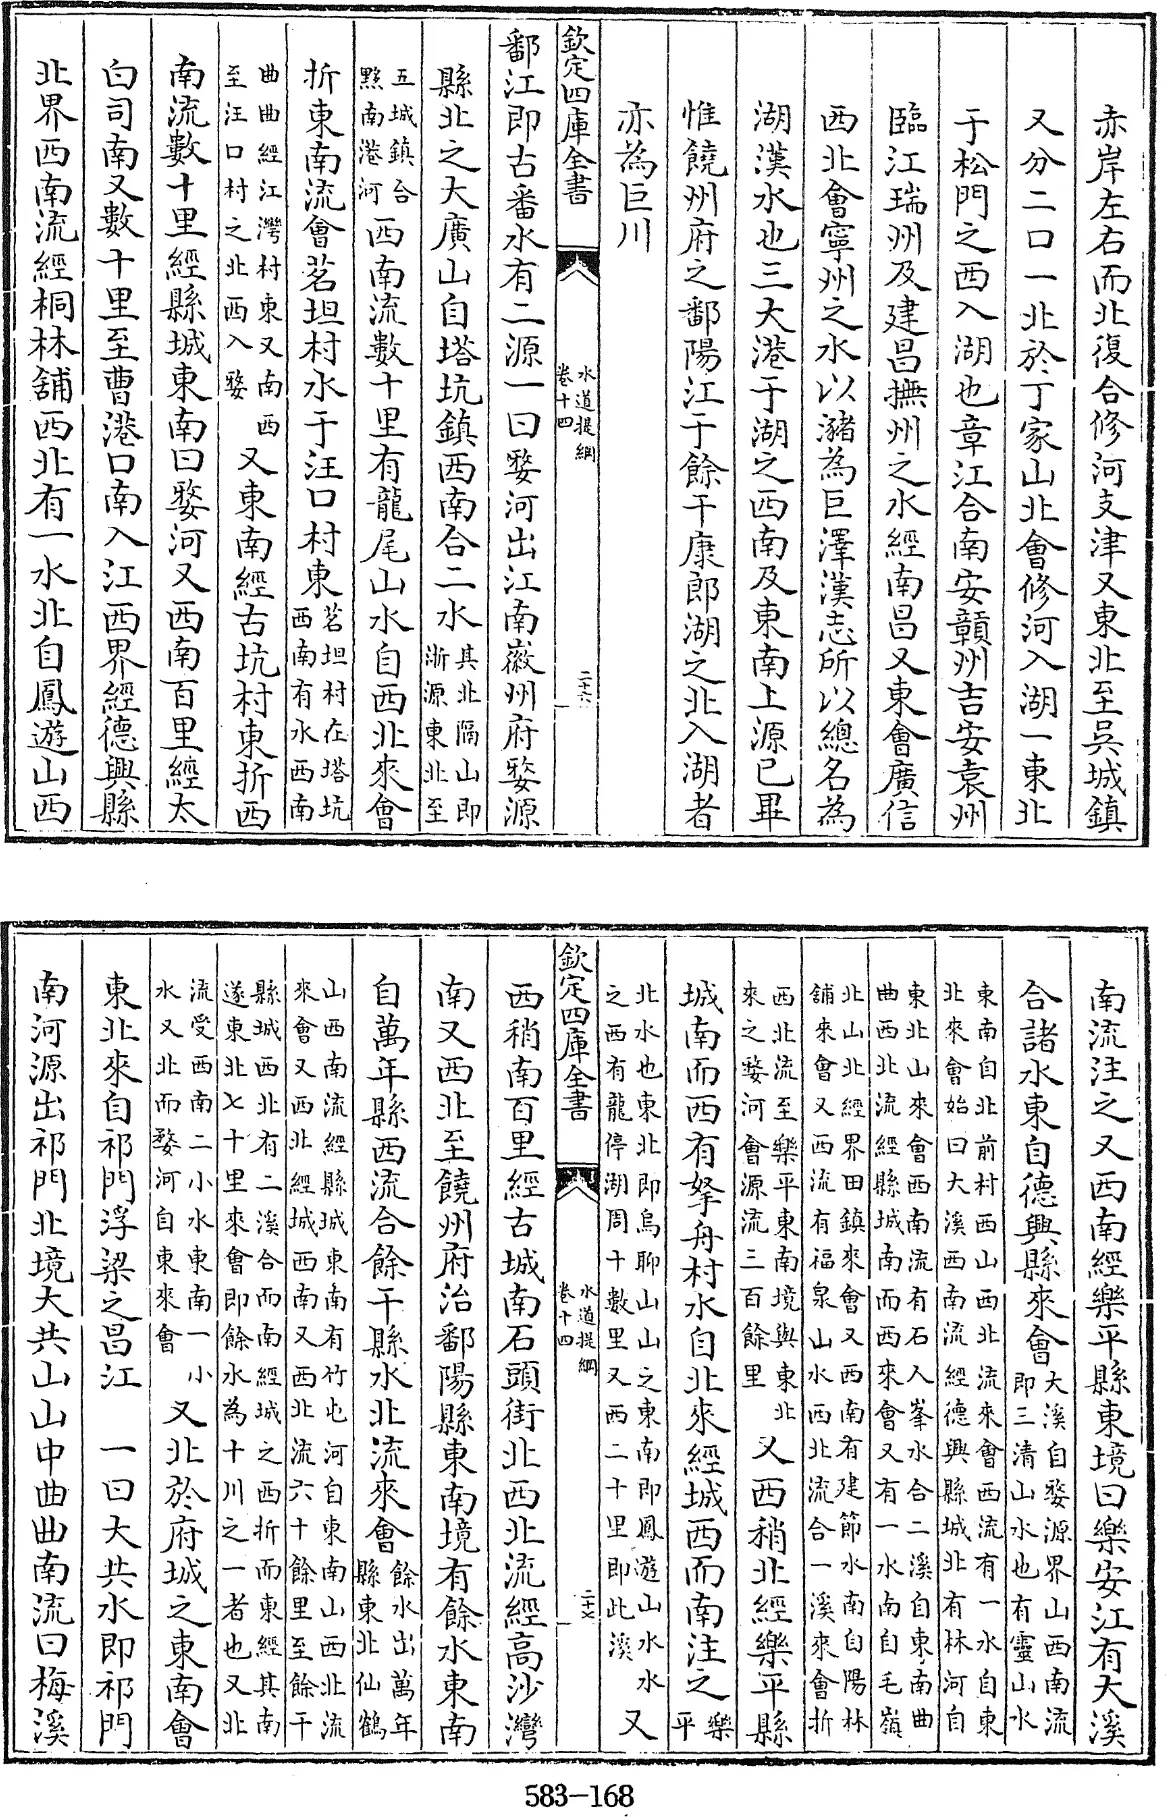 赤岸左右而北復合修河支津又東北至吳城鎮
又分二口一北於丁家山北會修河入湖一東北
于松門之西入湖也章江合南安贛州吉安袁州
臨江瑞州及建昌撫州之水經南昌又東會廣信
西北會寧州之水以瀦為巨澤漢志所以總名為
湖漢水也三大港于湖之西南及東南上源已畢
惟饒州府之鄱陽江于餘干康郎湖之北入湖者
亦為巨川
欽定四庫全書
水道提綱
卷十四
二十六
鄱江即古番水有二源一曰婺河出江南徽州府婺源
縣北之大廣山自塔坑鎮西南合二水其北隔山即浙源東北至
五城鎮合黟南港河西南流數十里有龍尾山水自西北來會
折東南流會茗坦村水于汪口村東茗坦村在塔坑西南有水西南
曲曲經江灣村東又南西至汪口村之北西入婺又東南經古坑村東折西
南流數十里經縣城東南曰婺河又西南百里經太
白司南又數十里至曹港口南入江西界經德興縣
北界西南流經桐林舖西北有一水北自鳳遊山西
南流注之又西南經樂平縣東境曰樂安江有大溪
合諸水東自德興縣來會大溪自婺源界山西南流即三清山水也有靈山水
東南自北前村西山西北流來會西流有一水自東北來會始曰大溪西南流經德興縣城北有林河自
東北山來會西南流有石人峯水合二溪自東南曲曲西北流經縣城南而西來會又有一水南自毛嶺
北山北經界田鎮來會又西南有建節水南自陽林舖來會又西流有福泉山水西北流合一溪來會折
西北流至樂平東南境與東北來之婺河會源流三百餘里又西稍北經樂平縣
城南而西有拏舟村水自北來經城西而南注之樂平
北水也東北即烏聊山山之東南即鳳遊山水水之西有龍停湖周十數里又西二十里即此溪又
欽定四庫全書
水道提綱
卷十四
二十七
西稍南百里經古城南石頭街北西北流經高沙灣
南又西北至饒州府治鄱陽縣東南境有餘水東南
自萬年縣西流合餘干縣水北流來會餘水出萬年縣東北仙鶴
山西南流經縣城東南有竹屯河自東南山西北流來會又西北經城西南又西北流六十餘里至餘干
縣城西北有二溪合而南經城之西折而東經其南遂東北七十里來會即餘水為十川之一者也又北
流受西南二小水東南一小水又北而婺河自東來會又北於府城之東南會
東北來自祁門浮梁之昌江 一曰大共水即祁門
南河源出祁門北境大共山山中曲曲南流曰梅溪
583-168